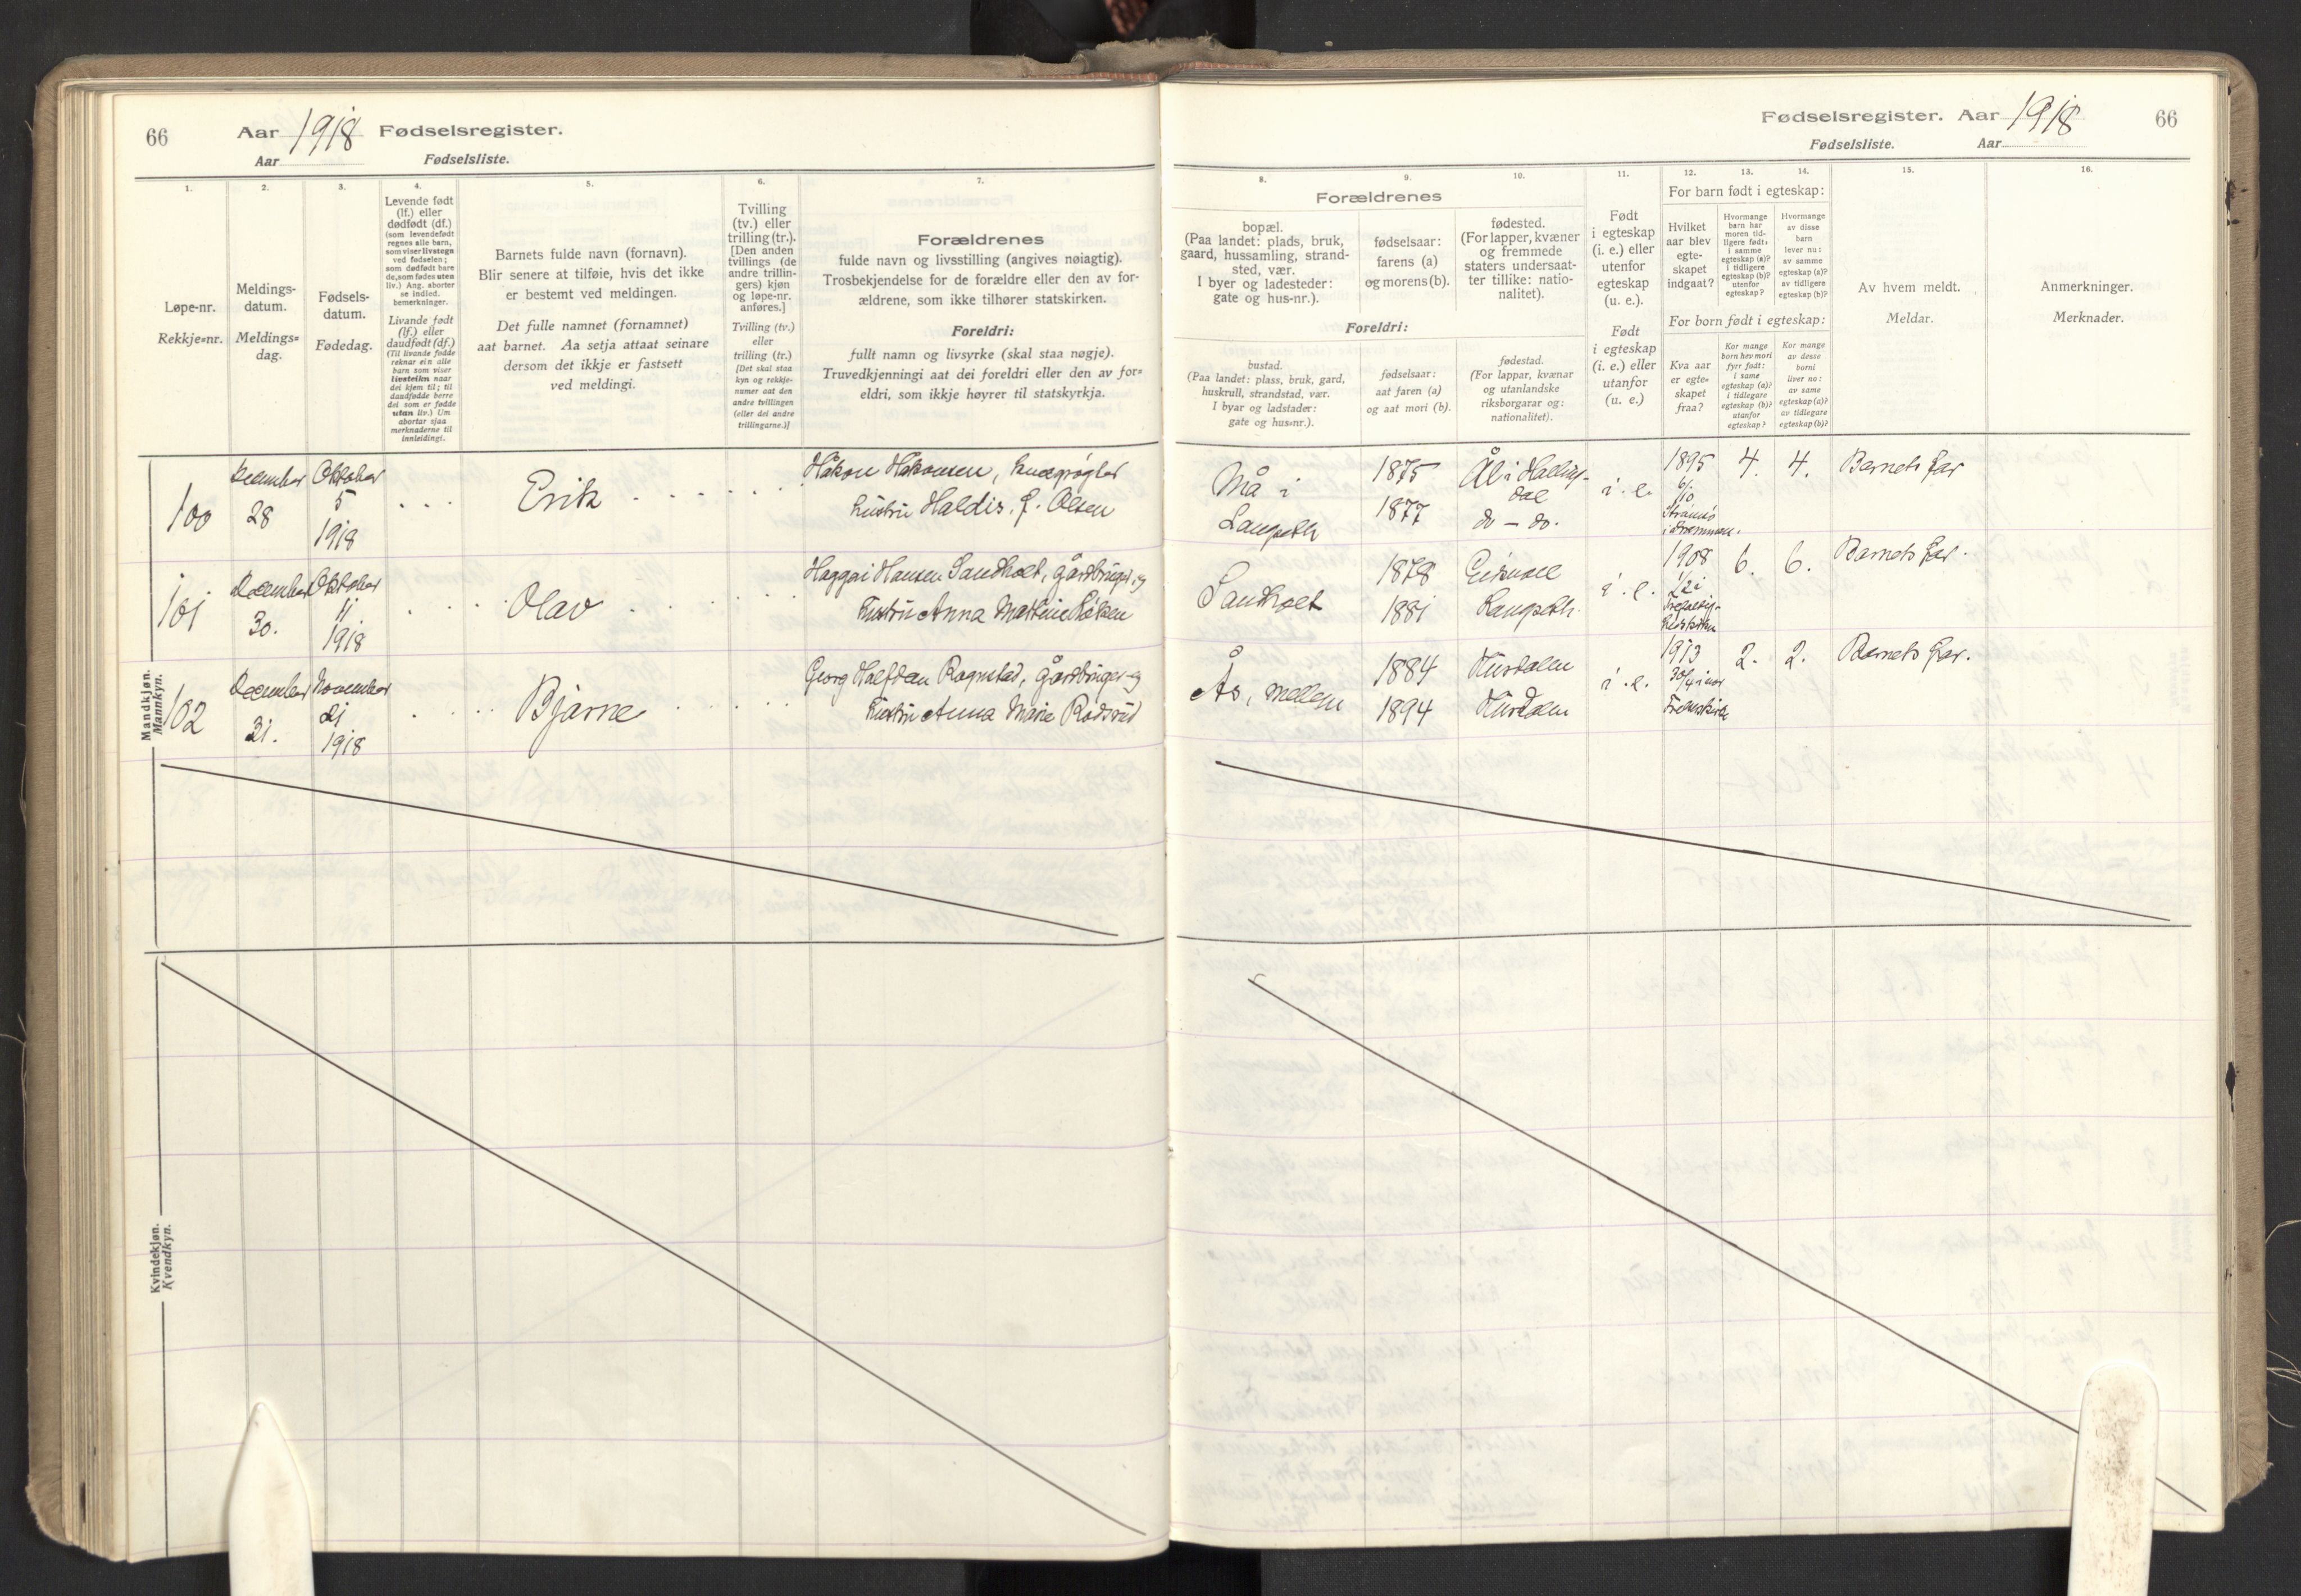 66
Aar 1918 Fødselsregister.
Aar Fødselsliste.
1.
2.
3.
4.
5.
6.
7.
Løpe-nr.
Rekkje=nr.
Meldings-
datum.
Meldings=
dag.
Fødsels-
datum.
Fødedag.
Levende født
(lf.) eller
dødfødt (df.)
(som levendefødt
regnes alle barn,
som viser livstegn
ved fødselen;
som dødfødt bare
de, som fødes uten
liv.) Ang. aborter
se indled.
bemerkninger.
Livande født
(lf.) eller
daudfødt (df.)
(Til livande fødde
reknar ein alle
barn som viser
livsteikn naar
dei kjem til; til
daudfødde berre
dei som er fødde
utan liv.) Um
abortar sjaa
merknaderne til
innleidingi.
Barnets fulde navn (fornavn).
Blir senere at tilføie, hvis det ikke
er bestemt ved meldingen.
Det fulle namnet (fornamnet)
aat barnet. Aa setja attaat seinare
dersom det ikkje er fastsett
ved meldingi.
Tvilling
(tv.) eller
trilling (tr.).
[Den anden
tvillings (de
andre trillin-
gers) kjøn
og løpe-nr.
anføres.]
Tvilling (tv.)
eller
trilling (tr.)
[Det skal staa
kyn og rekkje-
numer aat den
andre tvillingen
(eller dei andre
trillingarne.)]
Forældrenes
fulde navn og livsstilling (angives nøiagtig).
Trosbekjendelse for de forældre eller den av for-
ældrene, som ikke tilhører statskirken.
Foreldri:
fullt namn og livsyrke (skal staa nøgje).
Truvedkjenningi aat dei foreldri eller den av for=
eldri, som ikkje høyrer til statskyrkja.
Mandkjøn.
Mannkyn.
100
December
28
Oktober
5
1918
Erik
Håkon Håkonsen,
hustru Haldis, f. Olsen
101
December
30.
Oktober
11
1918
Olav
Haggai Hansen Sandholt, gårdbruger og
hustru Anna Martine
102
December
31.
November
21
1918
Bjarne
Georg Halfdan Rognstad, gårdbruger og
hustru Anna Marie Rødsrud
Kvindekjøn.
Kvendkyn.
Fødselsregister. Aar 1918
66
Fødselsliste. Aar
8.
9.
10.
11.
12.
13.
14.
15.
16.
Forældrenes
bopæl.
(Paa landet: plads, bruk,
gaard, hussamling, strand-
sted, vær.
I byer og ladesteder:
gate og hus-nr.).
fødselsaar:
farens (a)
og morens (b).
fødested.
(For lapper, kvæner
og fremmede
staters undersaat-
ter tillike: natio-
nalitet).
Foreldri:
bustad.
(Paa landet: plass, bruk, gard,
huskrull, strandstad, vær.
I byar og ladstader:
gate og hus=nr.).
fødselsaar:
aat faren (a)
og aat mori (b).
fødestad.
(For lappar, kvænar
og utanlandske
riksborgarar og:
nationalitet).
Født
i egteskap
(i. e.) eller
utenfor
egteskap
(u. e.).
Født
i egteskap
(i. e.) eller
utanfor
(u. e.)
For barn født i egteskap:
Hvilket
aar blev
egte-
skapet
indgaat?
Hvormange
barn har
moren tid-
ligere født:
i samme
egteskap (a)?
i tidligere
egteskap (b)?
utenfor
egteskap?
Hvormange
av disse
barn
lever nu:
av samme
egteskap (a)?
av tidligere
egteskap (b)?
For born født i egteskap:
Kva aar
er egte=
skapet
fraa?
Kor mange
born hev mori
fyrr født:
i same
egteskap (a)?
i tidlegare
egteskap (b)?
utanfor
egteskap?
Kor mange
av desse
borni
liver no:
av same
egteskap (a)?
av tidlegare
egteskap (b)?
Av hvem meldt.
Meldar.
Anmerkninger.
Merknader.
Må i
Laugeth
1875
1877
Ål i Halling-
dal
do - do.
i. e.
1895
6/10
Strømsø
i Drammen.
4.
4.
Barnets far
Sandholt
1878
1881
i. e.
1908
6.
6.
Barnets far.
Ås, mellem
1884
1894
i. e.
1913
30/4 i vor
2.
2.
Barnets far.